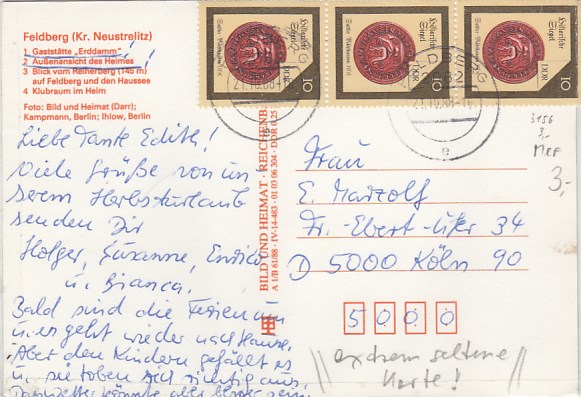 Feldberg (Kr. Neustrelitz)
1 Gaststätte „Erddamm"
2 Außenansicht des Heimes
3 Blick vom Reiherberg (145 m)
auf Feldberg und den Haussee
4 Klubraum im Heim
Foto: Bild und Heimat (Darr);
Kampmann, Berlin; Ihlow, Berlin
Liebe Tante Edith!
Viele Grüße von un-
serem Herbsturlaub
senden Dir
Holger, Susanne, Enrico
u. Bianca.
Bald sind die Ferien um
u. es geht wieder nach Hause.
Aber den Kindern gefällt es
u. sie toben sich richtig aus.
BILD UND HEIMAT · REICHENB
A 1/B 61/88 · IV-14-483 · 01 03 06 304 · DDR 0,25
Historische
Siegel
DDR
10
Historische
Siegel
DDR
10
Historische
Siegel
DDR
10
FELDBERG
21.10.88-16
e
3,-
Frau
E. Marzolf
Fr.-Ebert-Ufer 34
D 5000 Köln 90
5 0 0 0
extrem seltene
Karte!